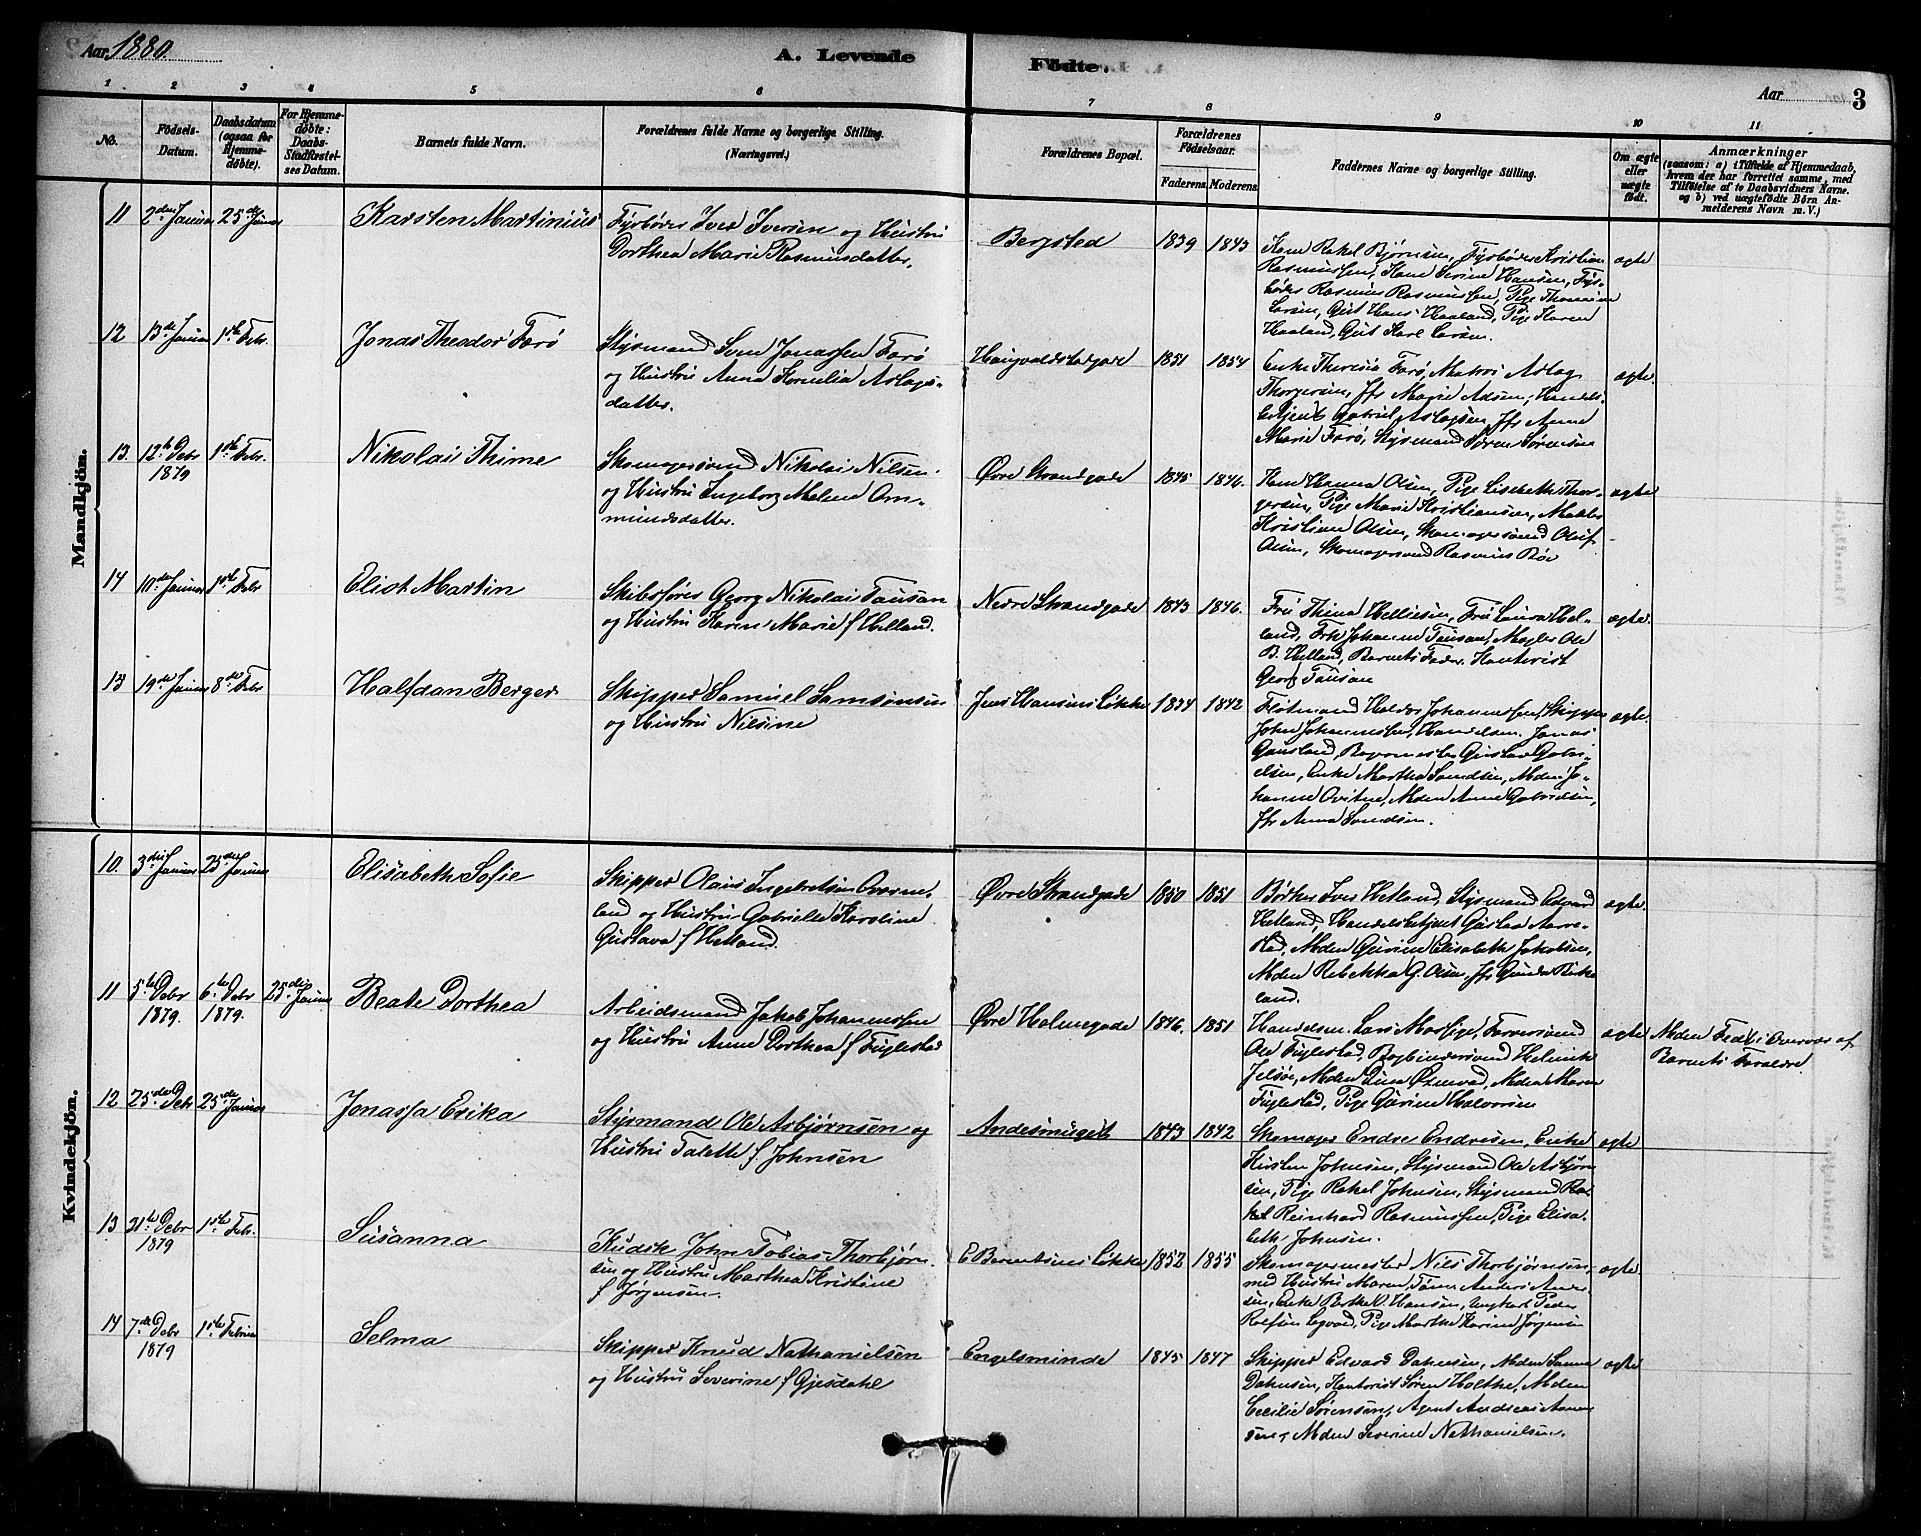 Aar 1880. A. Levende Födte. Aar 3
1 2 3 4 5 6 7 8 9 10 11
No. Födsels-Datum. Daabsdatum (ogsaa for Hjemmedöbte). For Hjemmedöbte: Daabs-Stadfæstelses Datum. Barnets fulde Navn. Forældrenes fulde Navne og borgerlige Stilling. (Næringsvei.) Forældrenes Bopæl. Forældrenes Födselsaar. Faderens. Moderens. Faddernes Navne og borgerlige Stilling. Om ægte eller uægte födt. Anmærkninger (saasom: a) i Tilfælde af Hjemmedaab, hvem der har forrettet samme, med Tilföielse af to Daabsvidners Navne. og b) ved uægtefödte Börn Anmelderens Navn m. V.)
Mandkjön.
11 2den Januar 25de Januar Karsten Martinius Fyrbøder Iver Iversen og Hustru
Dorthea Marie Rasmusdatter.
Bergsted 1839 1843 Kone Rakel Bjørnsen, Fyrbøder Kristian
Rasmussen, Kone Serine Hansen, Fyrbøder
Rasmus Rasmussen, Pige Thomine
Larsen, Gut Hans Haaland, Pige Karen
Haaland, Gut Karl Larsen. ægte
12 13de Januar 1ste Febr. Jonas Theodor Farø Styrmand Sven Jonassen Farø
og Hustru Anna Kornelia Aslags-
datter.
Haugvaldstadgade 1851 1854 Enke Theresia Farø, Matros Aslag
Thorgersen, Jfr Marie Adsen, Handels-
betjent Gabriel Aslagsen, Jfr Anne
Marie Farø, Styrmand Søren Sørensen ægte.
13. 12te Debr 1879 1ste Febr. Nikolai Thime Skomagersvend Nikolai Nilsen
og Hustru Ingeborg Malene Om-
mundsdatter.
Øvre Strandgade 1845 1846. Kone Hanna Olsen, Pige Lisebeth Thor-
gersen, Pige Marie Kristiansen,
Kristian Olsen, Skomagersvend Oluf
Olsen, Skomagersvend Rasmus Bøe ægte
14 10de Januar 1ste Febr Eliot Martin Skibsfører Georg Nikolai Tausan
og Hustru Karen Marie f Helland.
Nedre Strandgade 1843 1846. Fru Thina Helliesen, Fru Laura Hel-
land, Frk Johanne Tausan, Mægler Ole
B. Helland, Barnets Fader, Kontorist
Georg Tausan ægte.
15 19de Januar 8de Febr Halfdan Berger Skipper Samuel Samsonsen
og Hustru Nilsine
Jens Hansens Løkke 1834 1842 Fløtmand Haldor Johannessen, Skipper
John Johannessen, Handelsm. Jonas
Gausland, Bagermester Gustav Gabri-
elsen, Enke Martha Samdsen, Mdm Jo-
hanne Qvitne, Mdm Anne Gabrielsen,
Jfr Anna Samdsen. ægte.
Kvindekjön.
10. 3die Januar 25de Januar Elisabeth Sofie Skipper Olaus Ingebretsen Aarre-
land og Hustru Gabrielle Karoline
Gustava f Hetland.
Øvre Strandgade 1850 1851 Bødker Iver Hetland, Styrmand Edvard
Hetland, Handelsbetjent Gustav Aarre-
stad, Mdm Gurine Elisabeth Jakobsen,
Mdm Rebekka G. Olsen, Jfr Gunda Birke-
land. ægte.
11 5te Debr 1879. 6te Debr 1879. 25de Januar Beate Dorthea Arbeidsmand Jakob Johannessen
og Hustru Anne Dorthea f Fuglestad
Øvre Holmegade 1846. 1851 Handelsm. Lars Mossige, Farversvend
Ole Fuglestad, Bogbindersvend Helmik
Jelsøe, Mdm Lina Østevad, Mdm Maren
Fuglestad, Pige Gurine Halvorsen ægte Mdm Fedt i Overvær af
Barnets Forældre
12 25de Debr 25de Januar Jonassa Erika Styrmand Ole Asbjørnsen og
Hustru Talette f Johnsen
Andesmuget 1843 1842 Skomager Endre Endresen, Enke
Kirsten Johnsen, Styrmand Ole Asbjørn-
sen, Pige Rakel Johnsen, Styrmand
Reinhard Rasmussen, Pige Elisa-
beth Johnsen. ægte
13 21te Debr 1879 1ste Febr. Susanna Kudsk John Tobias Thorbjørn-
sen og Hustru Marthea Kristine
f Jørgensen.
E Berentsens Løkke 1852 1855 Skomagermester Nils Thorbjørnsen,
med Hustru Maren, Tønne Anders Ander-
sen, Enke Berthe O. Hansen, Ungkarl Peder
Rolfsen Lyvad, Pige Marthe Karine Jørgensen ægte.
14 7de Debr 1879 1ste Februar Selma Skipper Knud Nathanielsen
og Hustru Severine f Gjesdahl
Engelsminde 1845 1847 Skipper Edvard Danusen, Mdm Sanna
Danusen, Kontorist Søren Holthe, Mdm
Cecilie Sørensen, Agent Andreas Aanen-
sen, Mdm Severine Nathanielsen. ægte